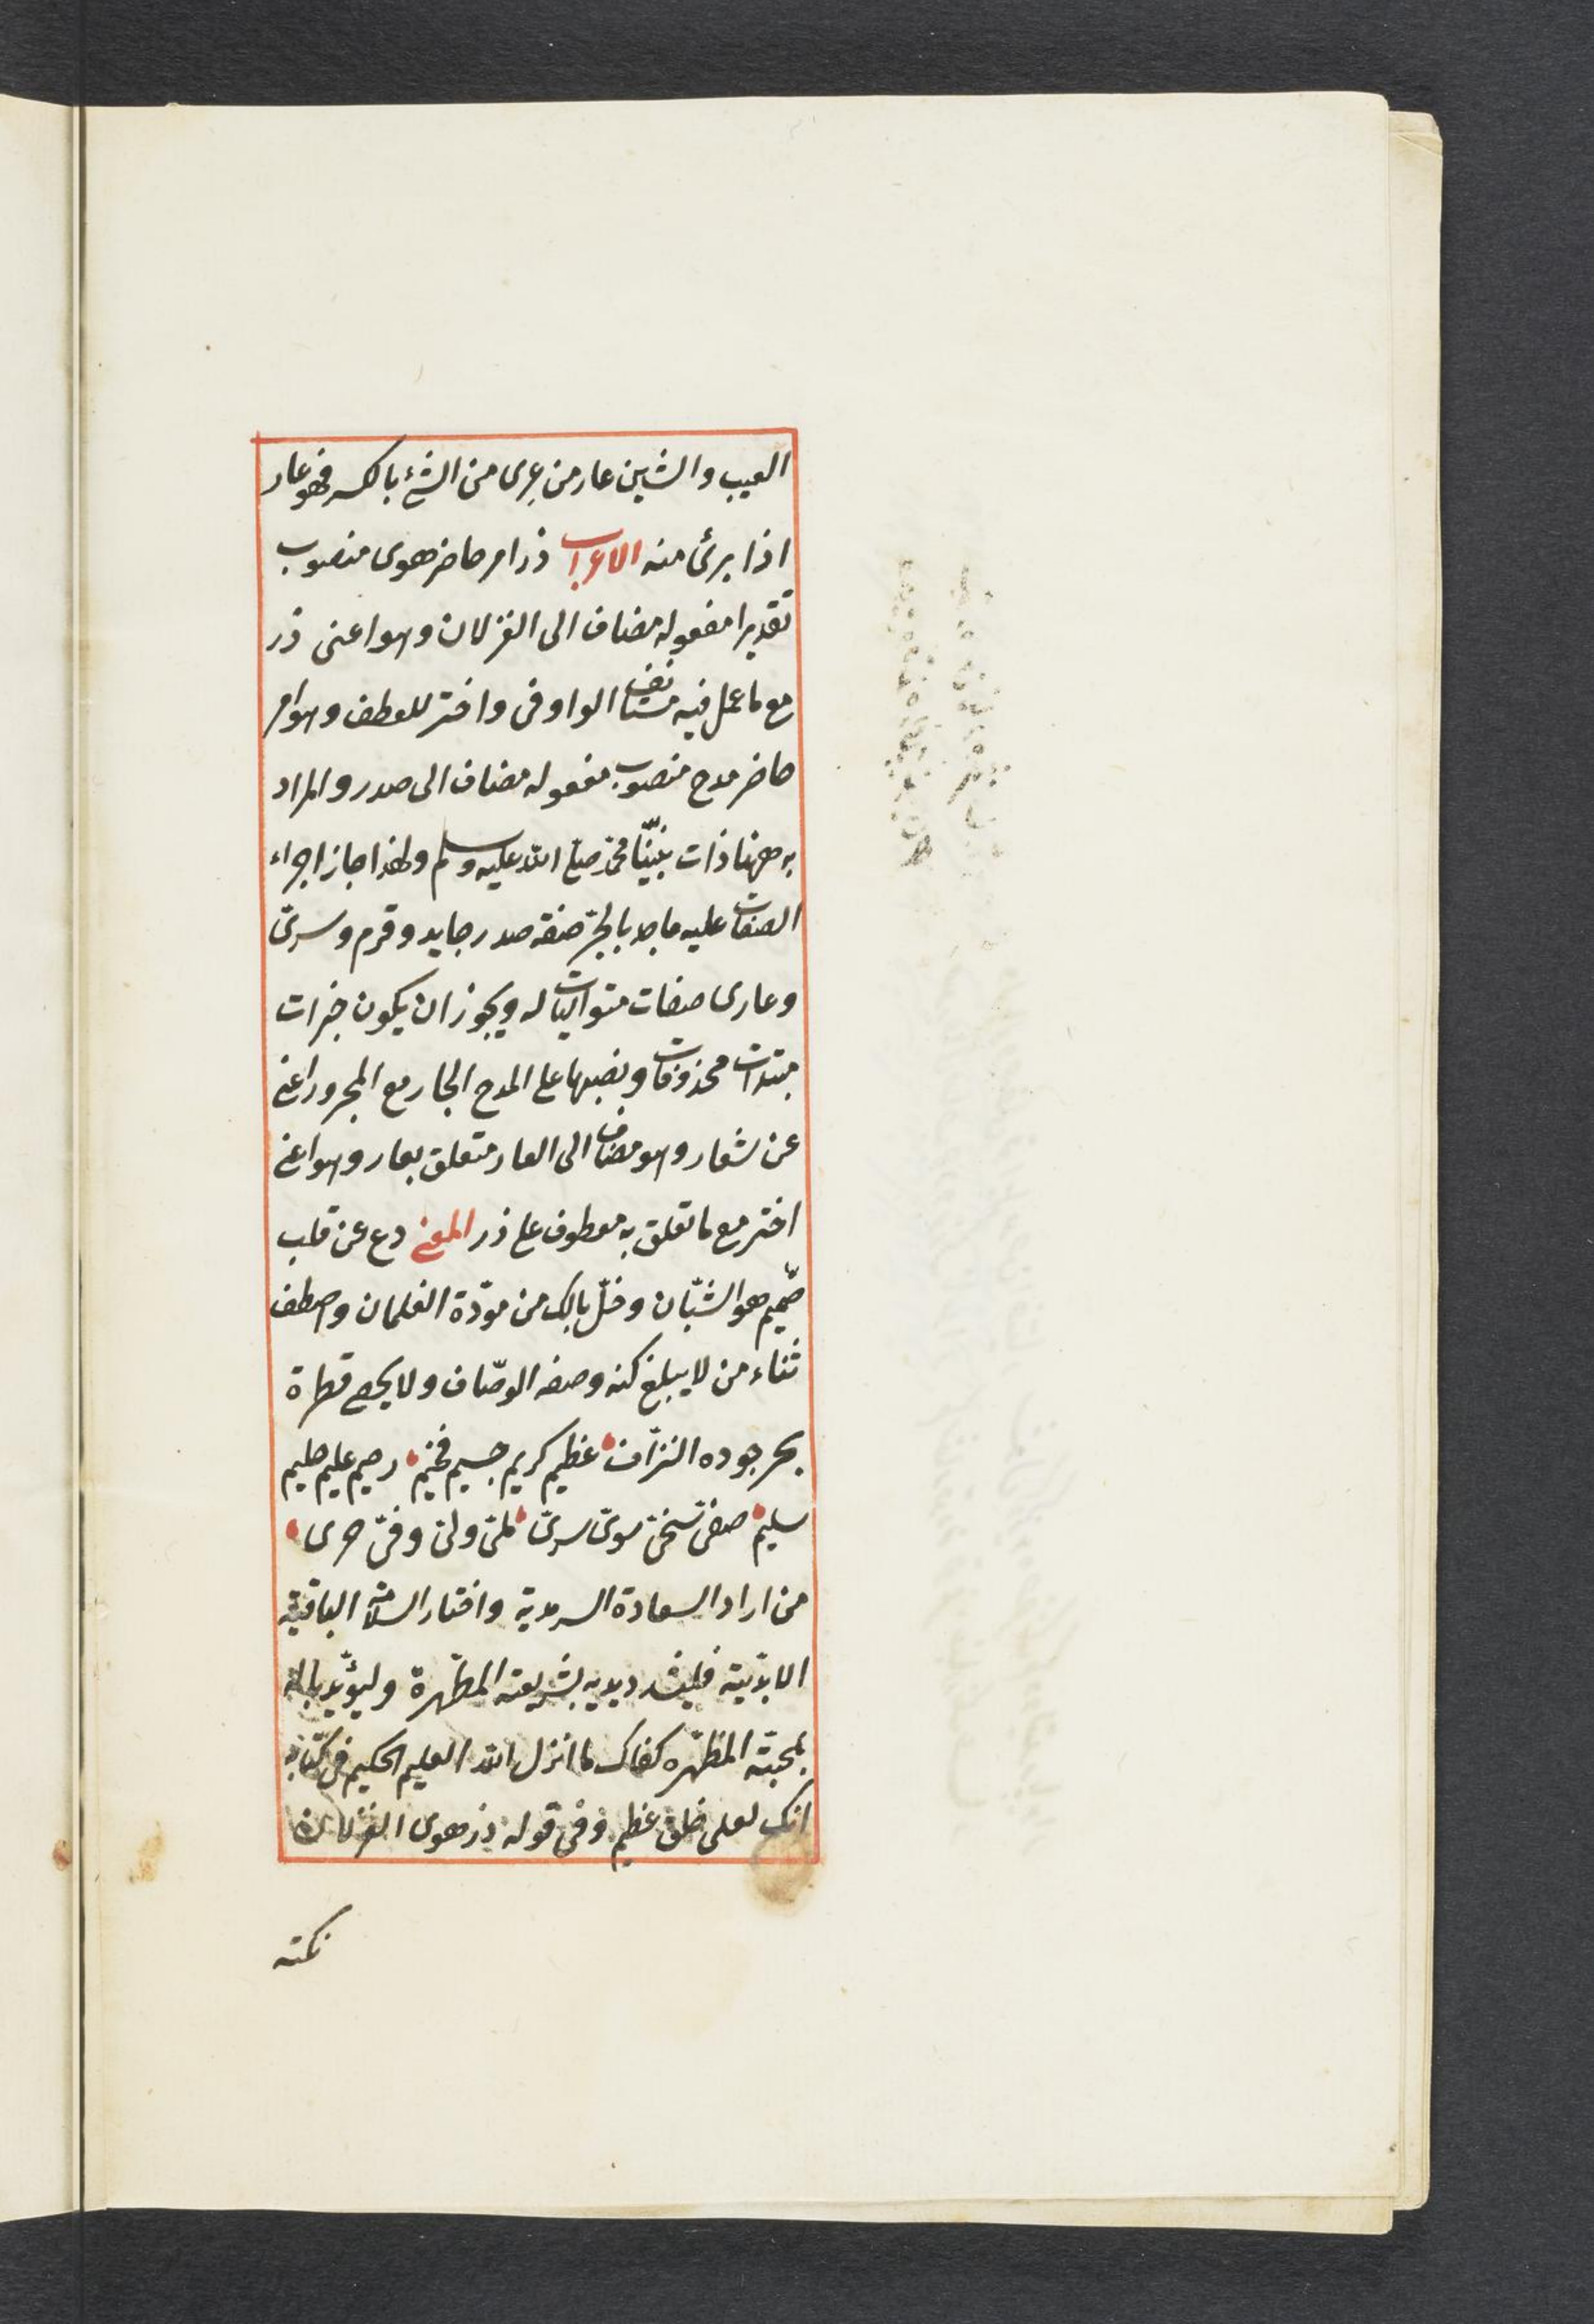 العيب والشين عار من عرى من الشئ بالكسر فهو عار
اذا برئ منه الاعراب ذر امر حاضر هوى منصوب
تقديرا مفعوله مضاف الى الغزلان وهو اعنى ذر
مع ما عمل فيه مستانف الواو فى واختر للعطف وهو امر
حاضر مدح منصوب مفعوله مضاف الى صدر والمراد
به ههنا ذات نبينّا محمّد صلى الله عليه وسلم ولهذا جاز اجراء
الصفات عليه ماجد بالجرّ صفة صدر جايد وقرم وسرىّ
وعارى صفات متواليات له ويجوز ان يكون خبرات
مبتدات محذوفات ونصبها على المدح الجار مع المجرور اعنى
عن شعار وهو مضاف الى العار متعلق بعار وهو اعنى
اختر مع ما تعلق به معطوف على ذر المعنى دع عن قلب
صميم هو الشبّان وخلّ بالك من مودّة الغلمان واصطف
ثناء من لا يبلغ كنه وصفه الوصّاف ولا يحصى قطرة
بحر جوده النزّاف عظيم كريم جسيم فخيم رحيم عليم حليم
سليم صفىّ سخىّ سوىّ سرىّ ملىّ ولىّ وفىّ حرى
من اراد السعادة السرمدية واختار السلامة الباقية
الابديّة فليشدد يديه بشريعته المطهّرة وليؤيّد باله
بمحبته المظهره كفاك ما انزل الله العليم الحكيم فى كتابه
انك لعلى خلق عظيم وفى قوله ذر هوى الغزلان
نكتة